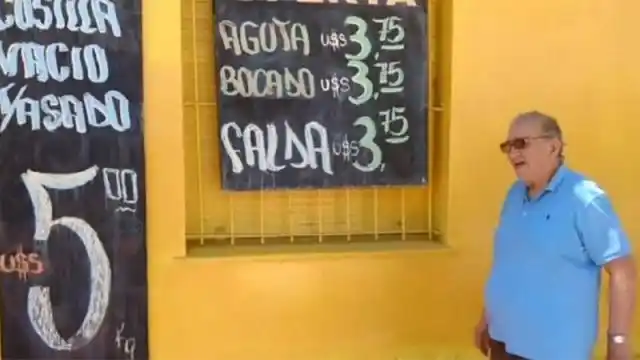 COSTILLA
VACIO
Y/ASADO
U$S 5,00
Kg
OFERTA
AGUJA U$S 3,75
BOCADO U$S 3,75
FALDA U$S 3,75